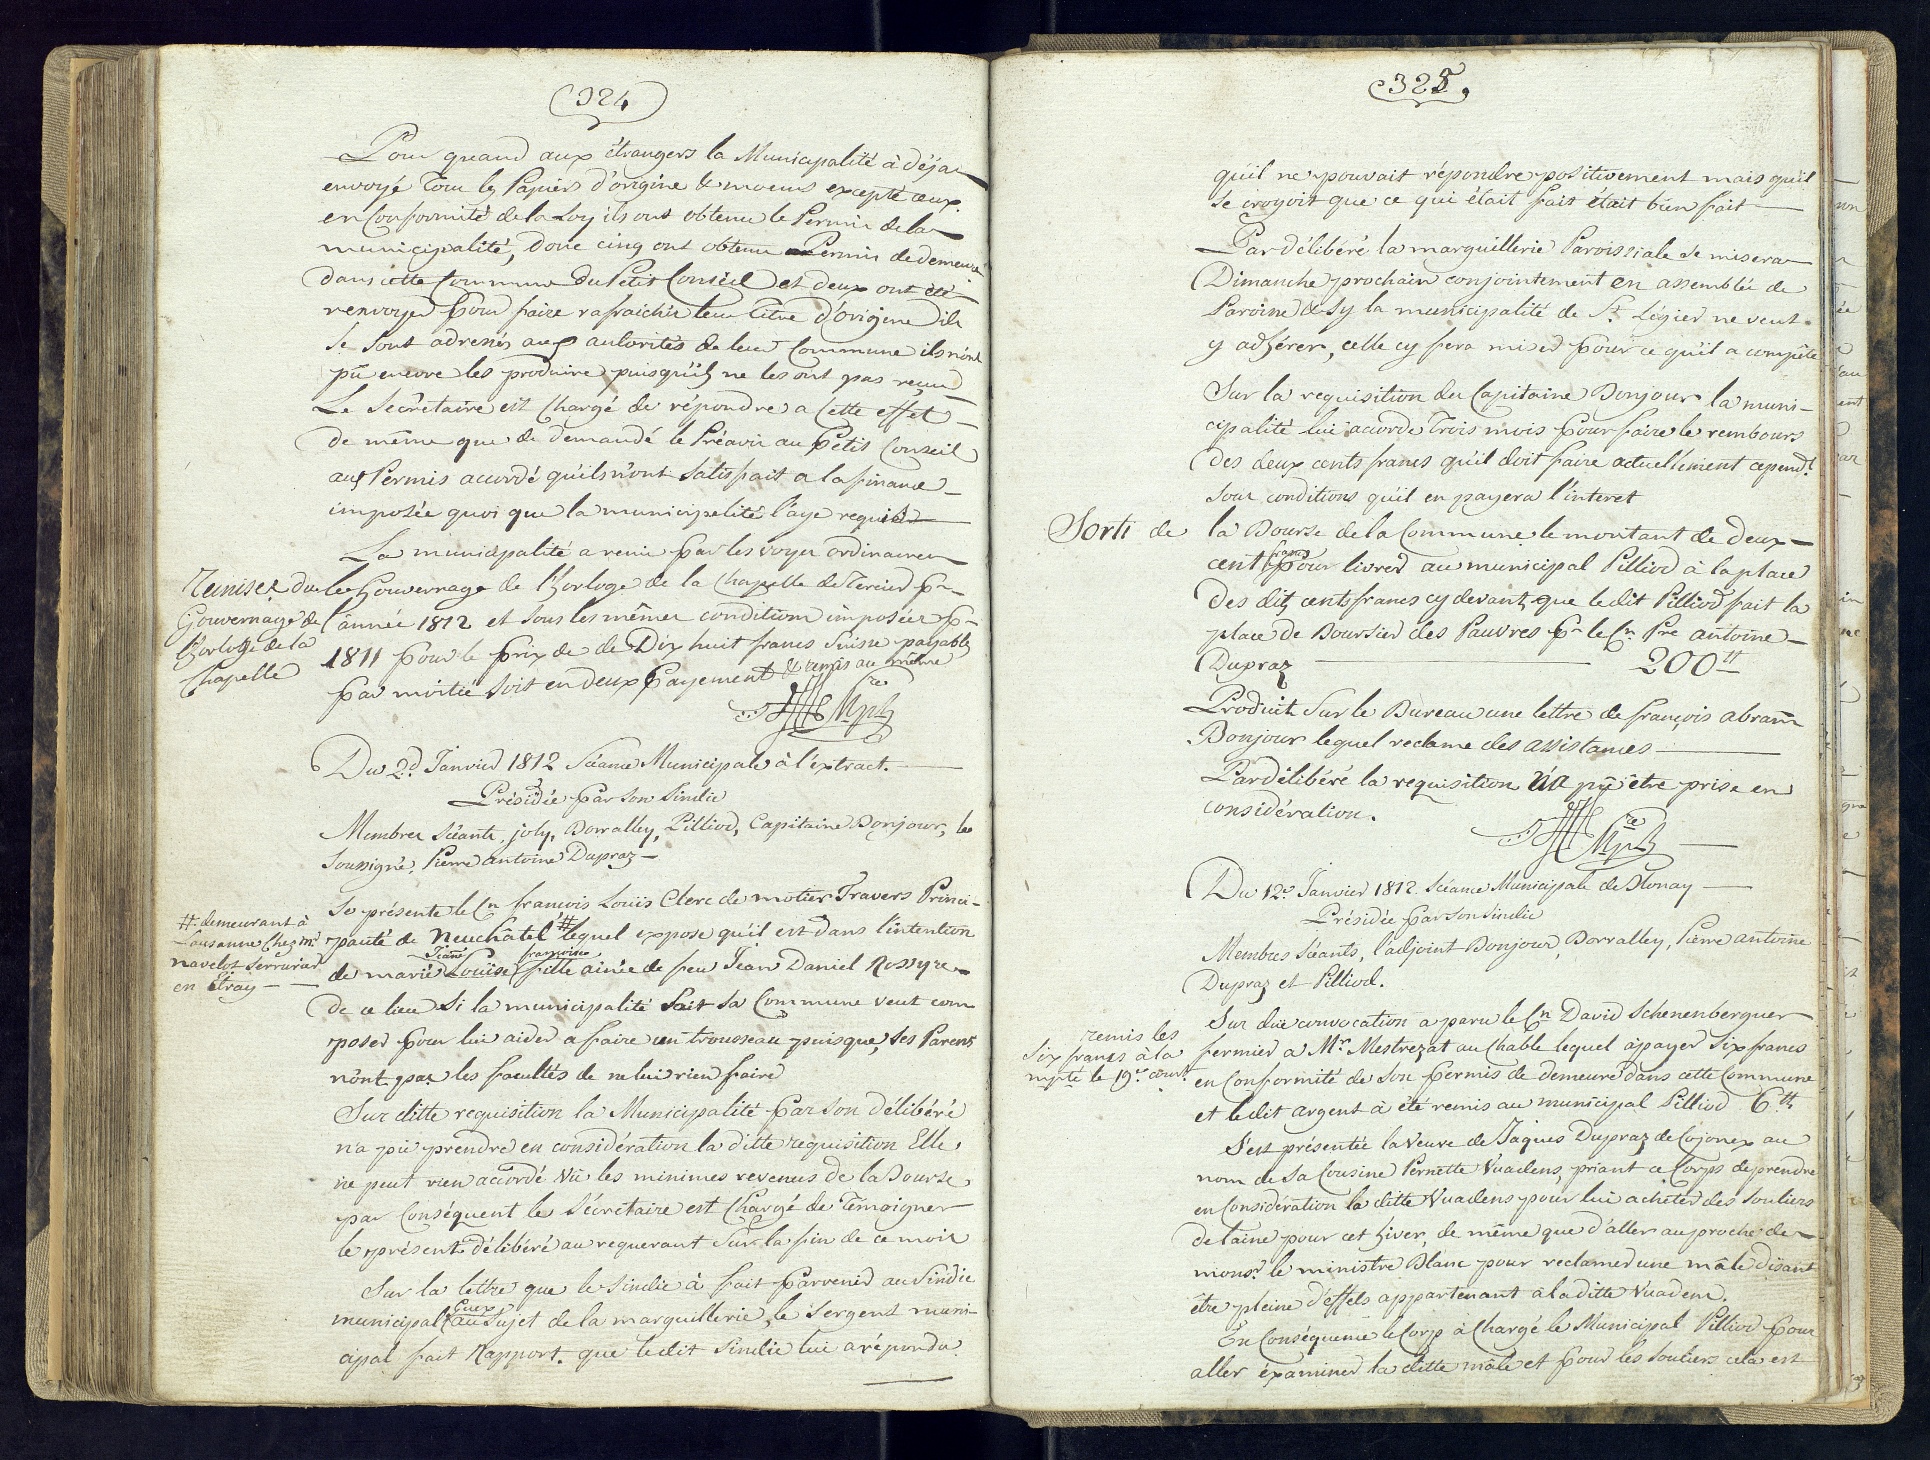 324
Pour quand aux étrangers la Municipalité à déja
envoyé Tous les Papiers d'origine & moeurs excepté ceux
en Conformité de la Loy ils ont obtenu le Permis de la
municipalité, donc cinq ont obtenu Permis de demeure
dans cette Commune du Petit Conseil et deux ont été
renvoyer pour faire rafraichir leur titre d'origine ils
se sont adressés aux autorités de leur Commune ils n'ont
pû encore les produire puisqu'ils ne les ont pas reçus
Le Secrétaire est Chargé de répondre a cette effet
de même que de demandé le Préavis au Petit Conseil
aux Permis accordé qu'ils n'ont Satisfait a la finance
imposée quoi que la municipalité l'aye requis
La municipalité a remi par les voyes ordinaires
Remise du
Gouvernage de
l'horloge de la
Chapelle
le Gouvernage de l'horloge de la Chapelle de Tercier pr
l'année 1812 et sous les mêmes conditions imposées pr
1811 pour le prix de de Dix huit francs Suisse payables
par moitié soit en deux Payement & remis au même
Du 2d Janvier 1812 Séance Municipale à l'extract.
Présidée par son Sindic
Membres Séants, joly, Dorralley, Pilliod, Capitaine Bonjour, le
Soussigné, Pierre antoine Dupraz
Se présente le Cn francois Louis Clerc de motier Travers Princi-
# demeurant à
Lausanne Chez mr
navelot Serrurier
en Etray
pauté de Neuchâtel # lequel expose qu'il est dans l'intention
Jeanne françoise
de marié Louise fille ainée de feu Jean Daniel Rossyre
de ce lieu Si la municipalité Soit sa Commune veut com
poser pour lui aider a faire un trousseau puisque, Ses Parens
n'ont pas les facultés de ne lui rien faire
Sur ditte requisition la Municipalité par son délibéré
n'a pû prendre en considération la ditte requisition Elle
ne peut rien accordé Vû les minimes revenus de la Bourse
par Conséquent le Sécretaire est Chargé de Témoigner
le présent délibéré au requerant Sur la fin de ce mois
Sur la lettre que le Sindic à fait Parvenir au Sindic
municipal Guex au Sujet de la marguillerie, le Sergent muni-
cipal fait Rapport. que ledit Sindic lui a répondu.
325
qu'il ne pouvait répondre positivement mais qu'il
se croyoit que ce qui était fait était bien fait
Par délibéré la marguillerie Paroissiale se misera
Dimanche prochain conjointement en assemblée de
Paroisse & Sy la municipalité de St Légier ne veut
y adhérer, celle cy sera mises pour ce qu'il a compète
Sur la requisition du Capitaine Bonjour la muni-
cipalité lui accorde Trois mois pour faire le rembours
des deux cents francs qu'il doit faire actuellement cependt
sous conditions qu'il en payera l'interet
Sorti de la Bourse de la Commune le montant de deux
cent francs pour livrer au municipal Pilliod à la place
des dits cents francs cy devant que le dit Pilliod fait la
place de Boursier des Pauvres pr le Cn Pre antoine
Dupraz 200 ₶
Produit Sur le Bureau une lettre de françois abram
Bonjour lequel reclame des assistances
Par délibéré la requisition n'a pû être prise en
considération.
Du 12e Janvier 1812. Séance Municipale de Blonay
Présidée par son Sindic
Membres Séants, l'adjoint Bonjour, Dorralley, Pierre antoine
Dupraz et Pilliod.
Sur due convocation a paru le Cn David Schenenberguer
remis les
Six francs à la
mpté le 19e court
fermier a Mr Mestrezat au Chable lequel à payer Six francs
en Conformité de Son permis de demeure dans cette Commune
et ledit argent à été remis au municipal Pilliod 6 ₶
S'est présentée la Veuve de Jaques Dupraz de Cojonex au
nom de Sa Cousine Pernette Vuadens, priant ce Corps de prendre
en Considération la ditte Vuadens pour lui acheter des Souliers
de laine pour cet hiver, de même que d'aller au proche de
monsr le ministre Blanc pour reclamer une mâle disant
être pleine d'effets appartenant à la ditte Vuadens.
En Conséquence le Corps à Chargé le Municipal Pilliod pour
aller éxaminer la ditte mâle et pour les Souliers cela est